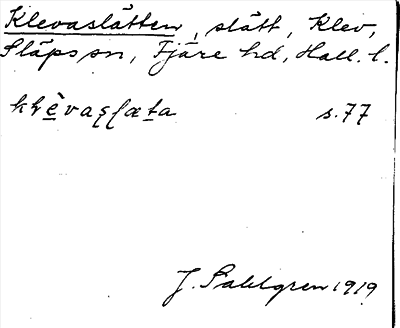 Klevaslätten, slätt, Klev,
Släps sn, Fjäre hd, Hall. l.
s. 77
J. Sahlgren 1919